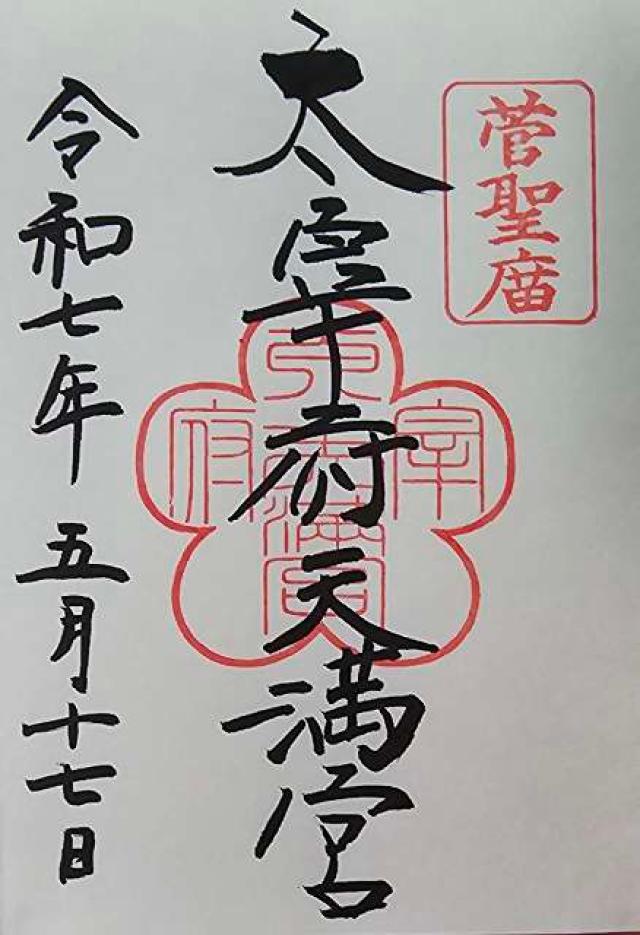 菅聖庿
太宰府天満宮
太宰府天満宮
令和七年 五月十七日